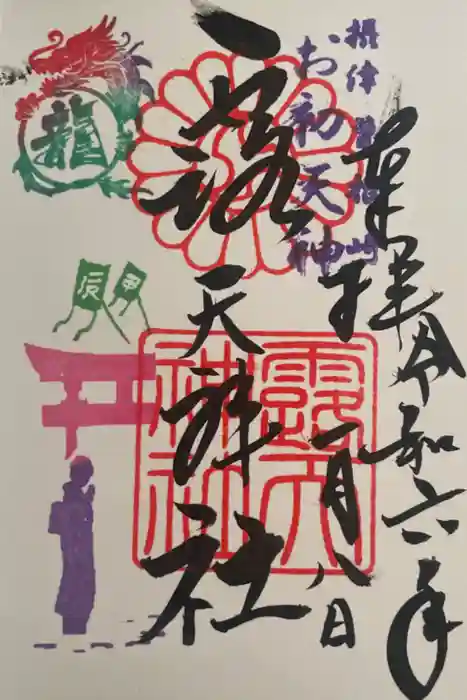 奉拝 令和六年
一月八日
摂津曽根崎
お初天神
露天神社
露天神社
龍
甲辰